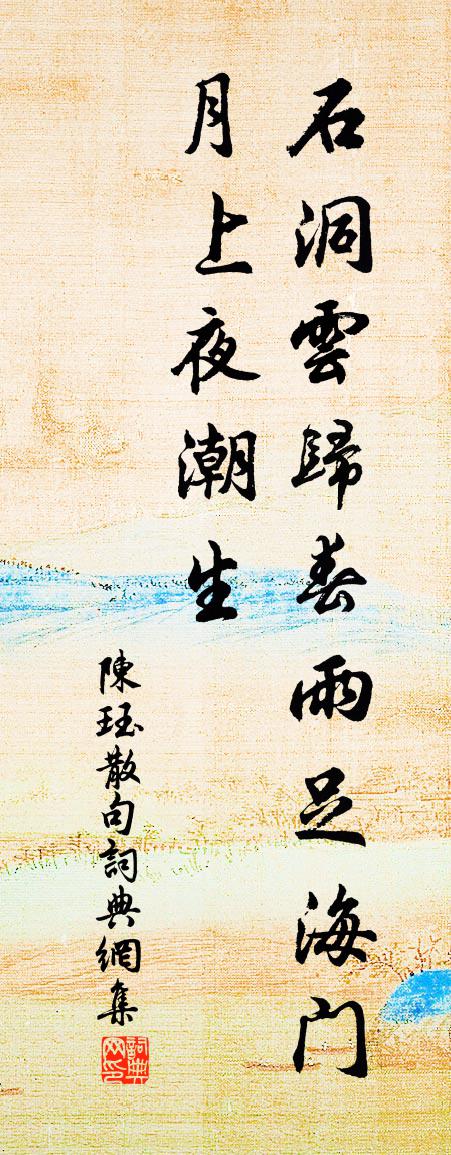 石洞雲歸春雨足海門
月上夜潮生
陳珏散句詞典網集
詞典
网印